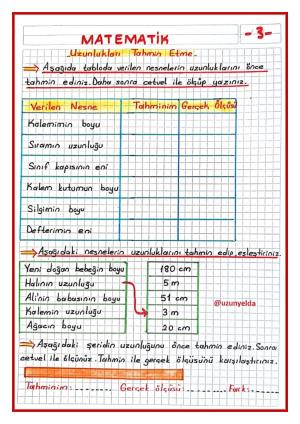 MATEMATİK
-3-
Uzunlukları Tahmin Etme
⇒ Aşağıda tabloda verilen nesnelerin uzunluklarını önce
tahmin ediniz. Daha sonra cetvel ile ölçüp yazınız.
Verilen Nesne Tahminim Gerçek Ölçüsü
Kalemimin boyu
Sıramın uzunluğu
Sınıf kapısının eni
Kalem kutumun boyu
Silgimin boyu
Defterimin eni
⇒ Aşağıdaki nesnelerin uzunluklarını tahmin edip, eşleştiriniz.
Yeni doğan bebeğin boyu 180 cm
Halının uzunluğu 5 m
Ali'nin babasının boyu 51 cm
Kalemin uzunluğu 3 m
Ağacın boyu 20 cm
@uzunyelda
⇒ Aşağıdaki şeridin uzunluğunu önce tahmin ediniz. Sonra
cetvel ile ölçünüz. Tahmin ile gerçek ölçüsünü karşılaştırınız.
Tahminim: ........ Gerçek ölçüsü: ........ Fark: ........